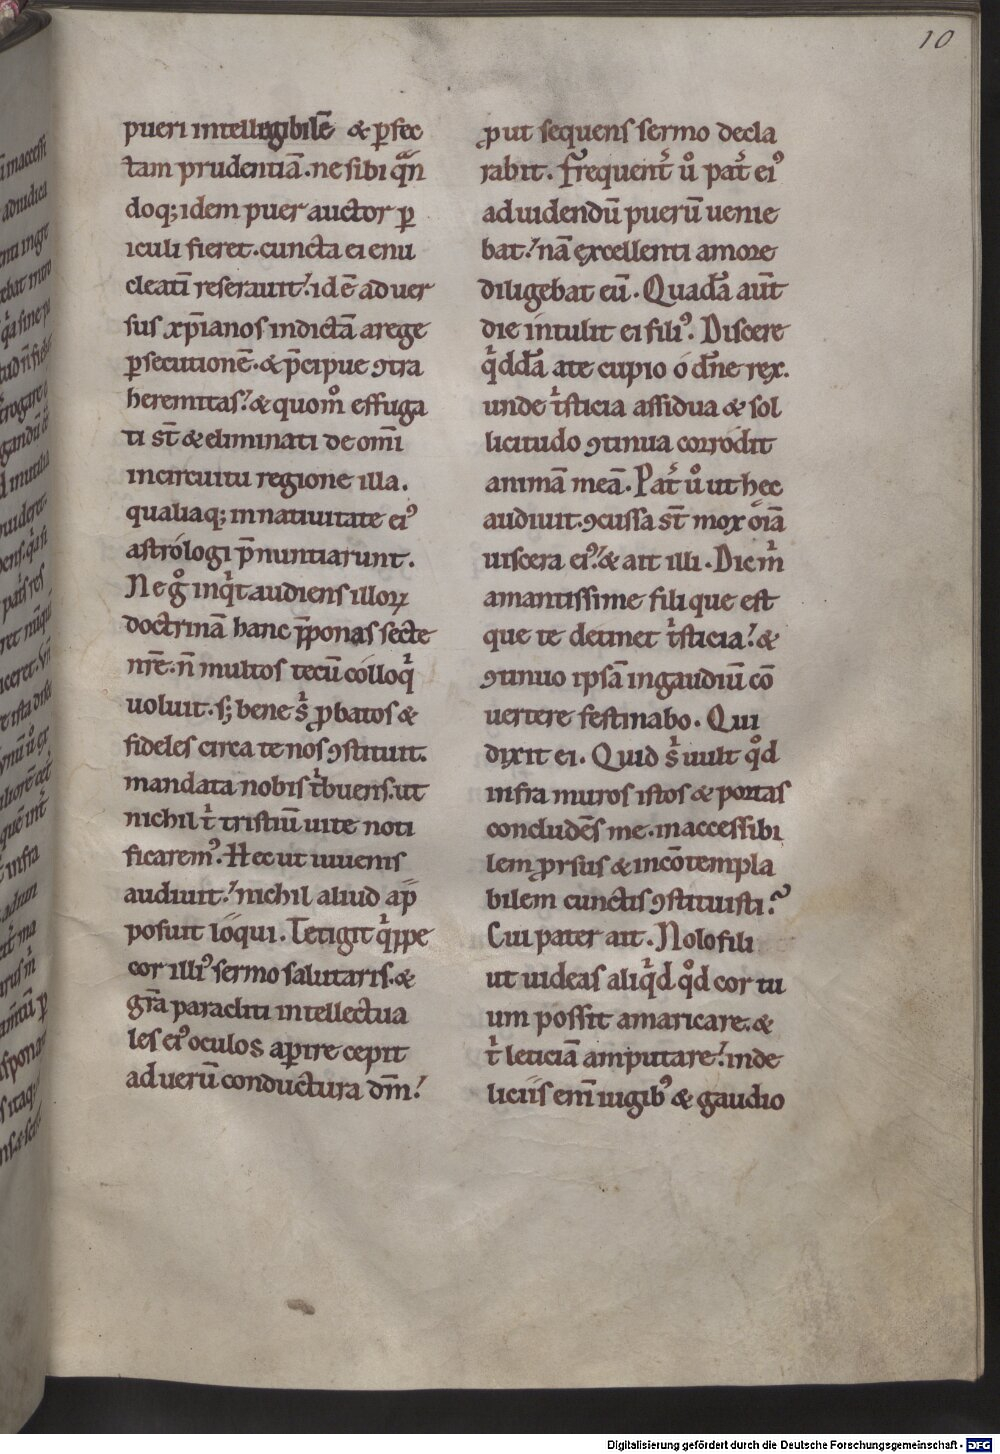 10
pueri intellegibilē & ꝑfec
tam prudentiā. ne sibi qn̄
doq; idem puer auctor ꝑ
iculi fieret. cuncta ei enu
cleatī reserauit. id ē aduer
sus xp̄ianos indictā a rege
ꝑsecutionē. & p̄cipue ꝯtra
heremitas. & quom̊ effuga
ti st̄ & eliminati de om̄i
in circuitu regione illa.
qualiaq; in natiuitate eiꝰ
astrologi p̄nuntiarunt.
Ne g̊ inqͥt audiens illoꝝ
doctrinā hanc p̄ponas secte
nr̄e. n̄ multos tecū colloqͥ
uoluit. s; bene sͥ ꝓbatos &
fideles circa te nos ꝯstituit.
mandata nobis tͥbuens. ut
nichil tͥ tristiū uite noti
ficaremꝰ. Hec ut iuuenis
audiuit. nichil aliud ap̄
posuit loqui. Tetigit qͥppe
cor illiꝰ sermo salutaris. &
gr̄a paracliti intellectua
les eiꝰ oculos aꝑire cepit
ad uerū conductura dm̄.
ꝓut sequens sermo decla
rabit. Frequent̄ ů pat̄ eiꝰ
ad uidendū puerū uenie
bat. nā excellenti amore
diligebat eū. Quadā aūt
die intulit ei filiꝰ. Discere
qͥddā a te cupio o dn̄e rex.
unde tͥsticia assidua & sol
licitudo ꝯtinua corrodit
animā meā. Pat̄ ů ut hec
audiuit. ꝯcussa st̄ mox oīa
uiscera eiꝰ. & ait illi. Dic mͥ
amantissime fili que est
que te detinet tͥsticia. &
ꝯtinuo ipsā in gaudiū cō
uertere festinabo. Qui
dixit ei. Quid sͥ uult qd̊
infra muros istos & portas
concludēs me. inaccessibi
lem ꝓrsus & incōtempla
bilem cunctis ꝯstituisti?
Cui pater ait. Nolo fili
ut uideas aliqͥd qd̊ cor tu
um possit amaricare. &
tͥ leticiā amputare. in de
liciis eni̅ iugibꝰ & gaudio
Digitalisierung gefördert durch die Deutsche Forschungsgemeinschaft - DFG